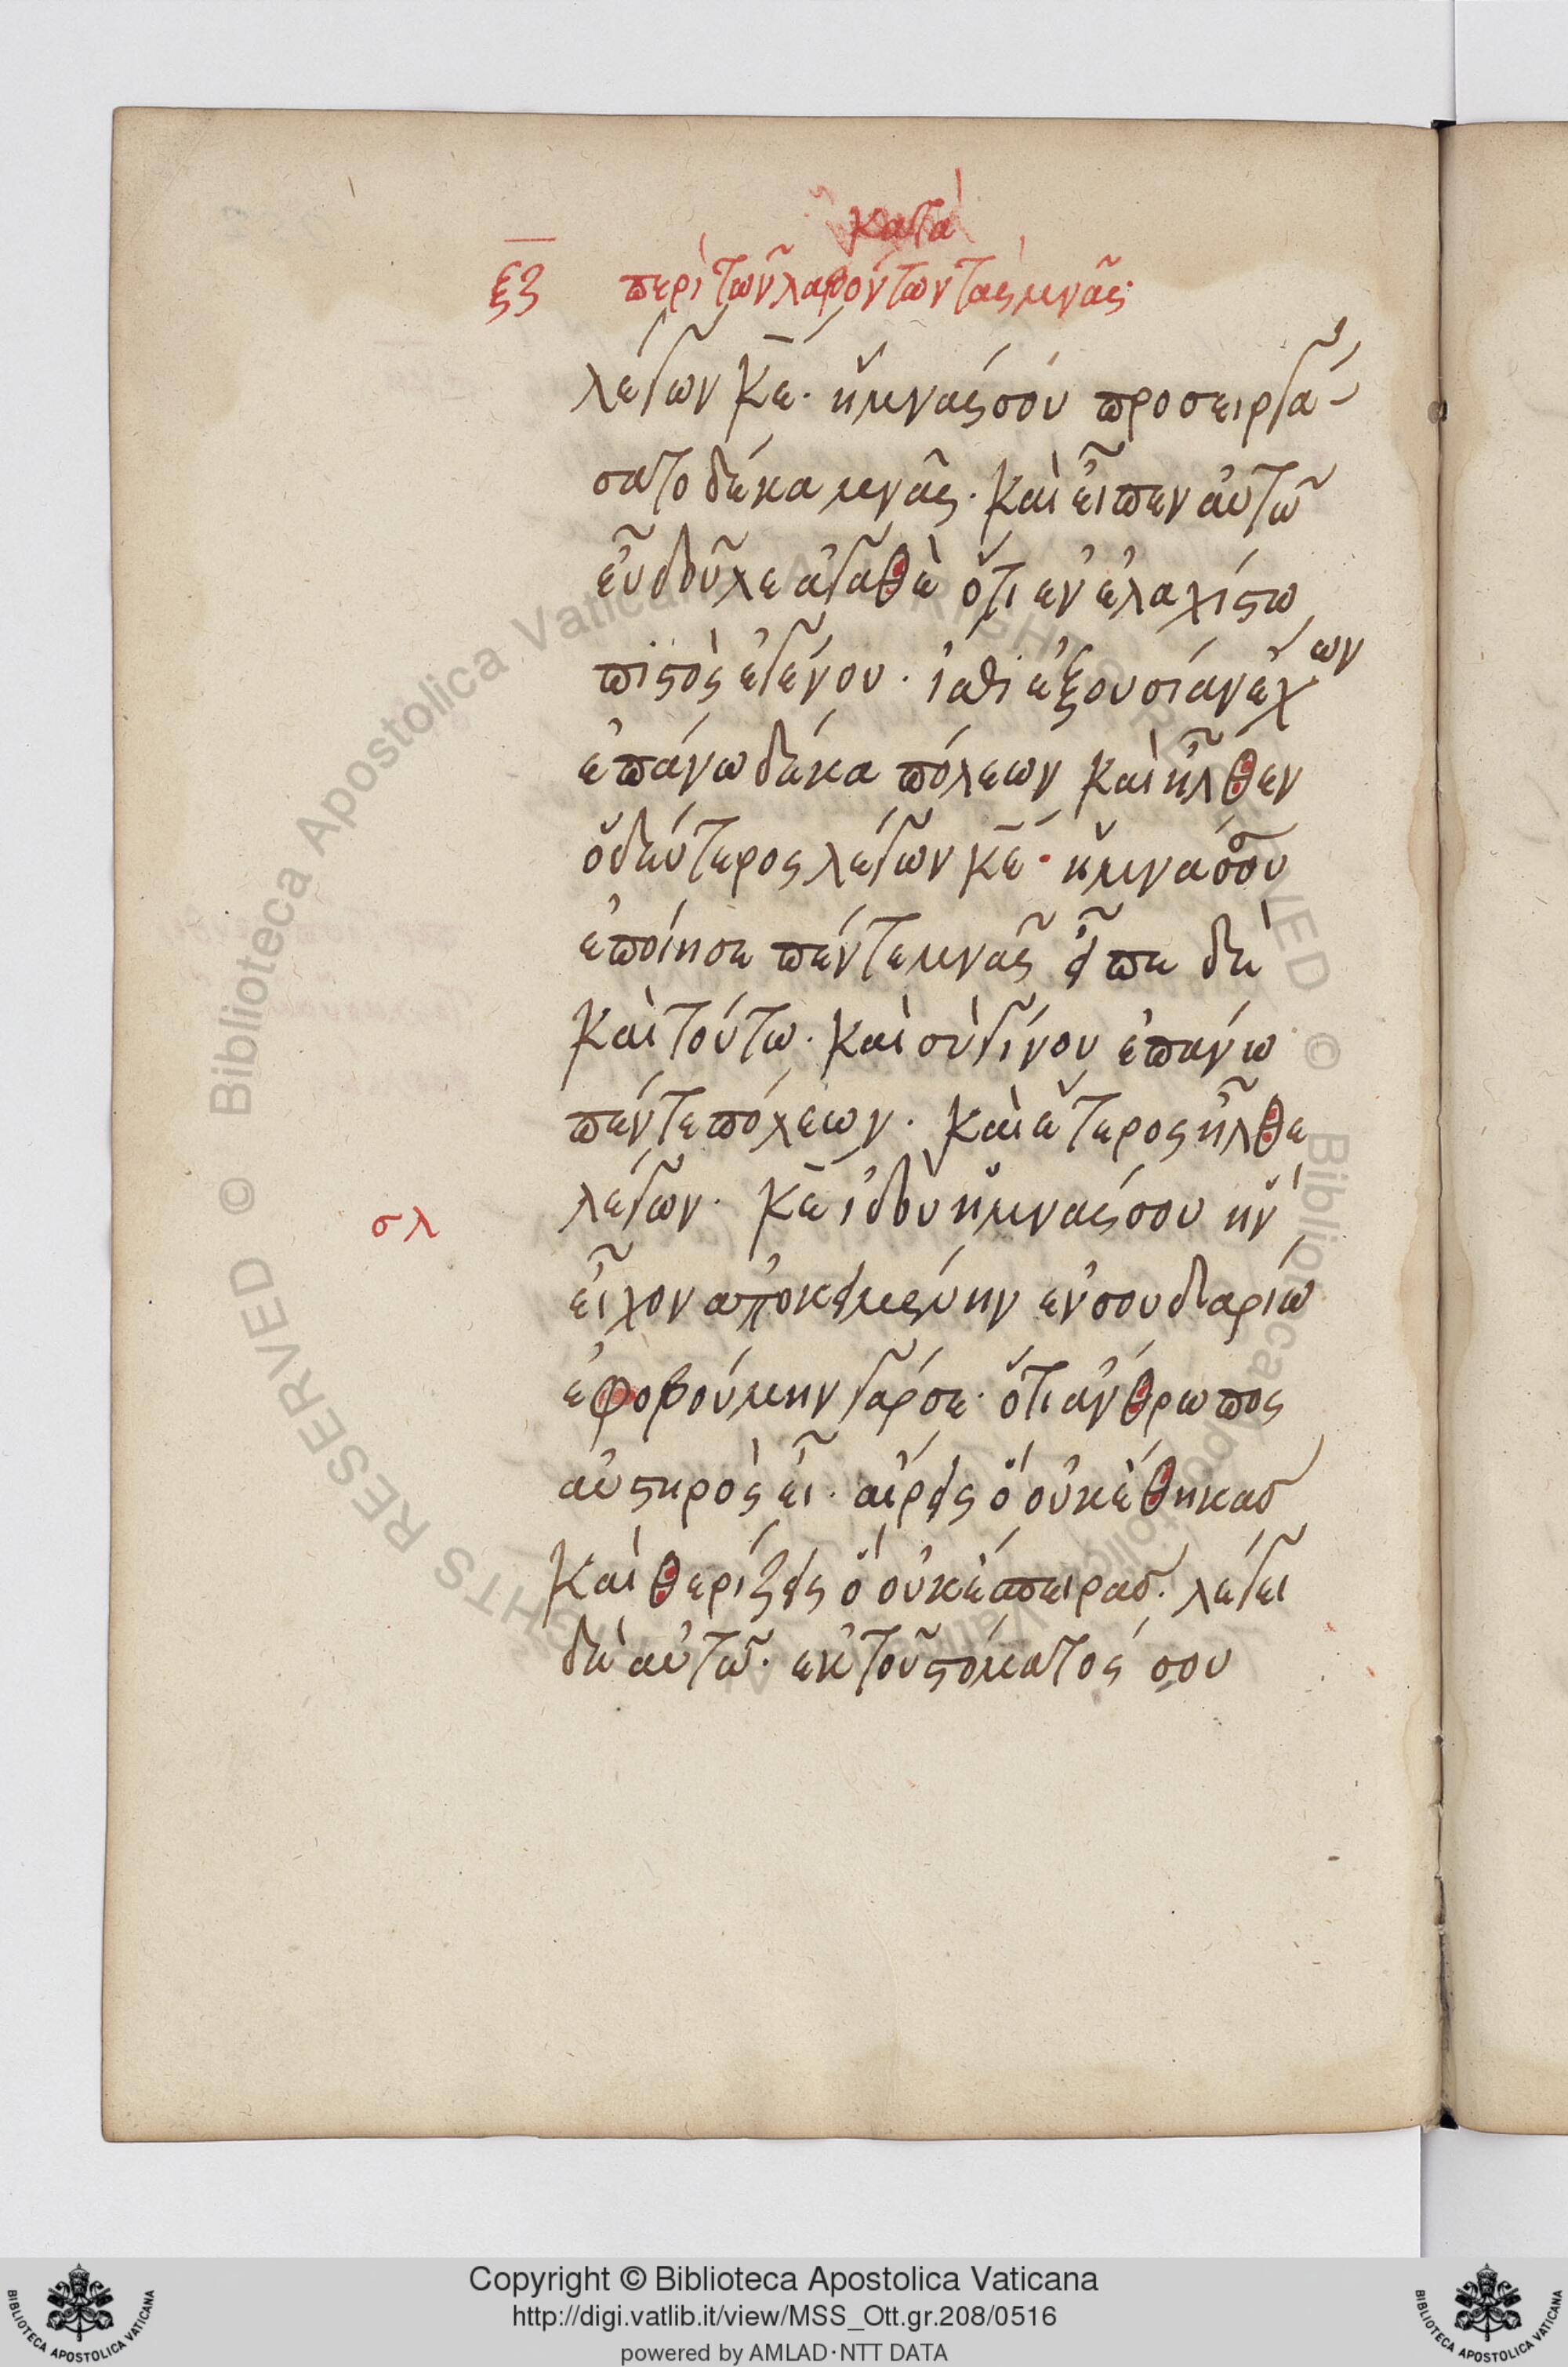 κατὰ
ξζ περὶ τῶν λαβόντων τὰς μνᾶς
λέγων κε̄· ἡ μνᾶς σου προσειργά-
σατο δέκα μνᾶς· καὶ εἶπεν αὐτῶ
εὖ δοῦλε ἀγαθὲ ὅτι ἐν ἐλαχίστω
πιστὸς ἐγένου· ἴσθι ἐξουσίαν ἔχων
ἐπάνω δέκα πόλεων καὶ ἦλθεν
ὁ δεύτερος λέγων κε̄· ἡ μνᾶ σου
ἐποίησε πέντε μνᾶς εἶπε δὲ
καὶ τούτω· καὶ σὺ γίνου ἐπάνω
πέντε πόλεων· καὶ ἕτερος ἦλθε
λέγων· κε̄ ἰδοὺ ἡ μνᾶς σου ἣν
σλ
εἶχον ἀποκειμένην ἐν σουδαρίω
ἐφοβούμην γάρ σε· ὅτι ἄνθρωπος
αὐστηρὸς εἶ· αἴρεις ὃ οὐκ ἔθηκας
καὶ θερίζεις ὃ οὐκ ἔσπειρας· λέγει
δὲ αὐτῶ· ἐκ τοῦ στόματός σου
Biblioteca Apostolica Vaticana ALL RIGHTS RESERVED ©
Copyright © Biblioteca Apostolica Vaticana
http://digi.vatlib.it/view/MSS_Ott.gr.208/0516
powered by AMLAD·NTT DATA
BIBLIOTECA APOSTOLICA VATICANA
BIBLIOTECA APOSTOLICA VATICANA